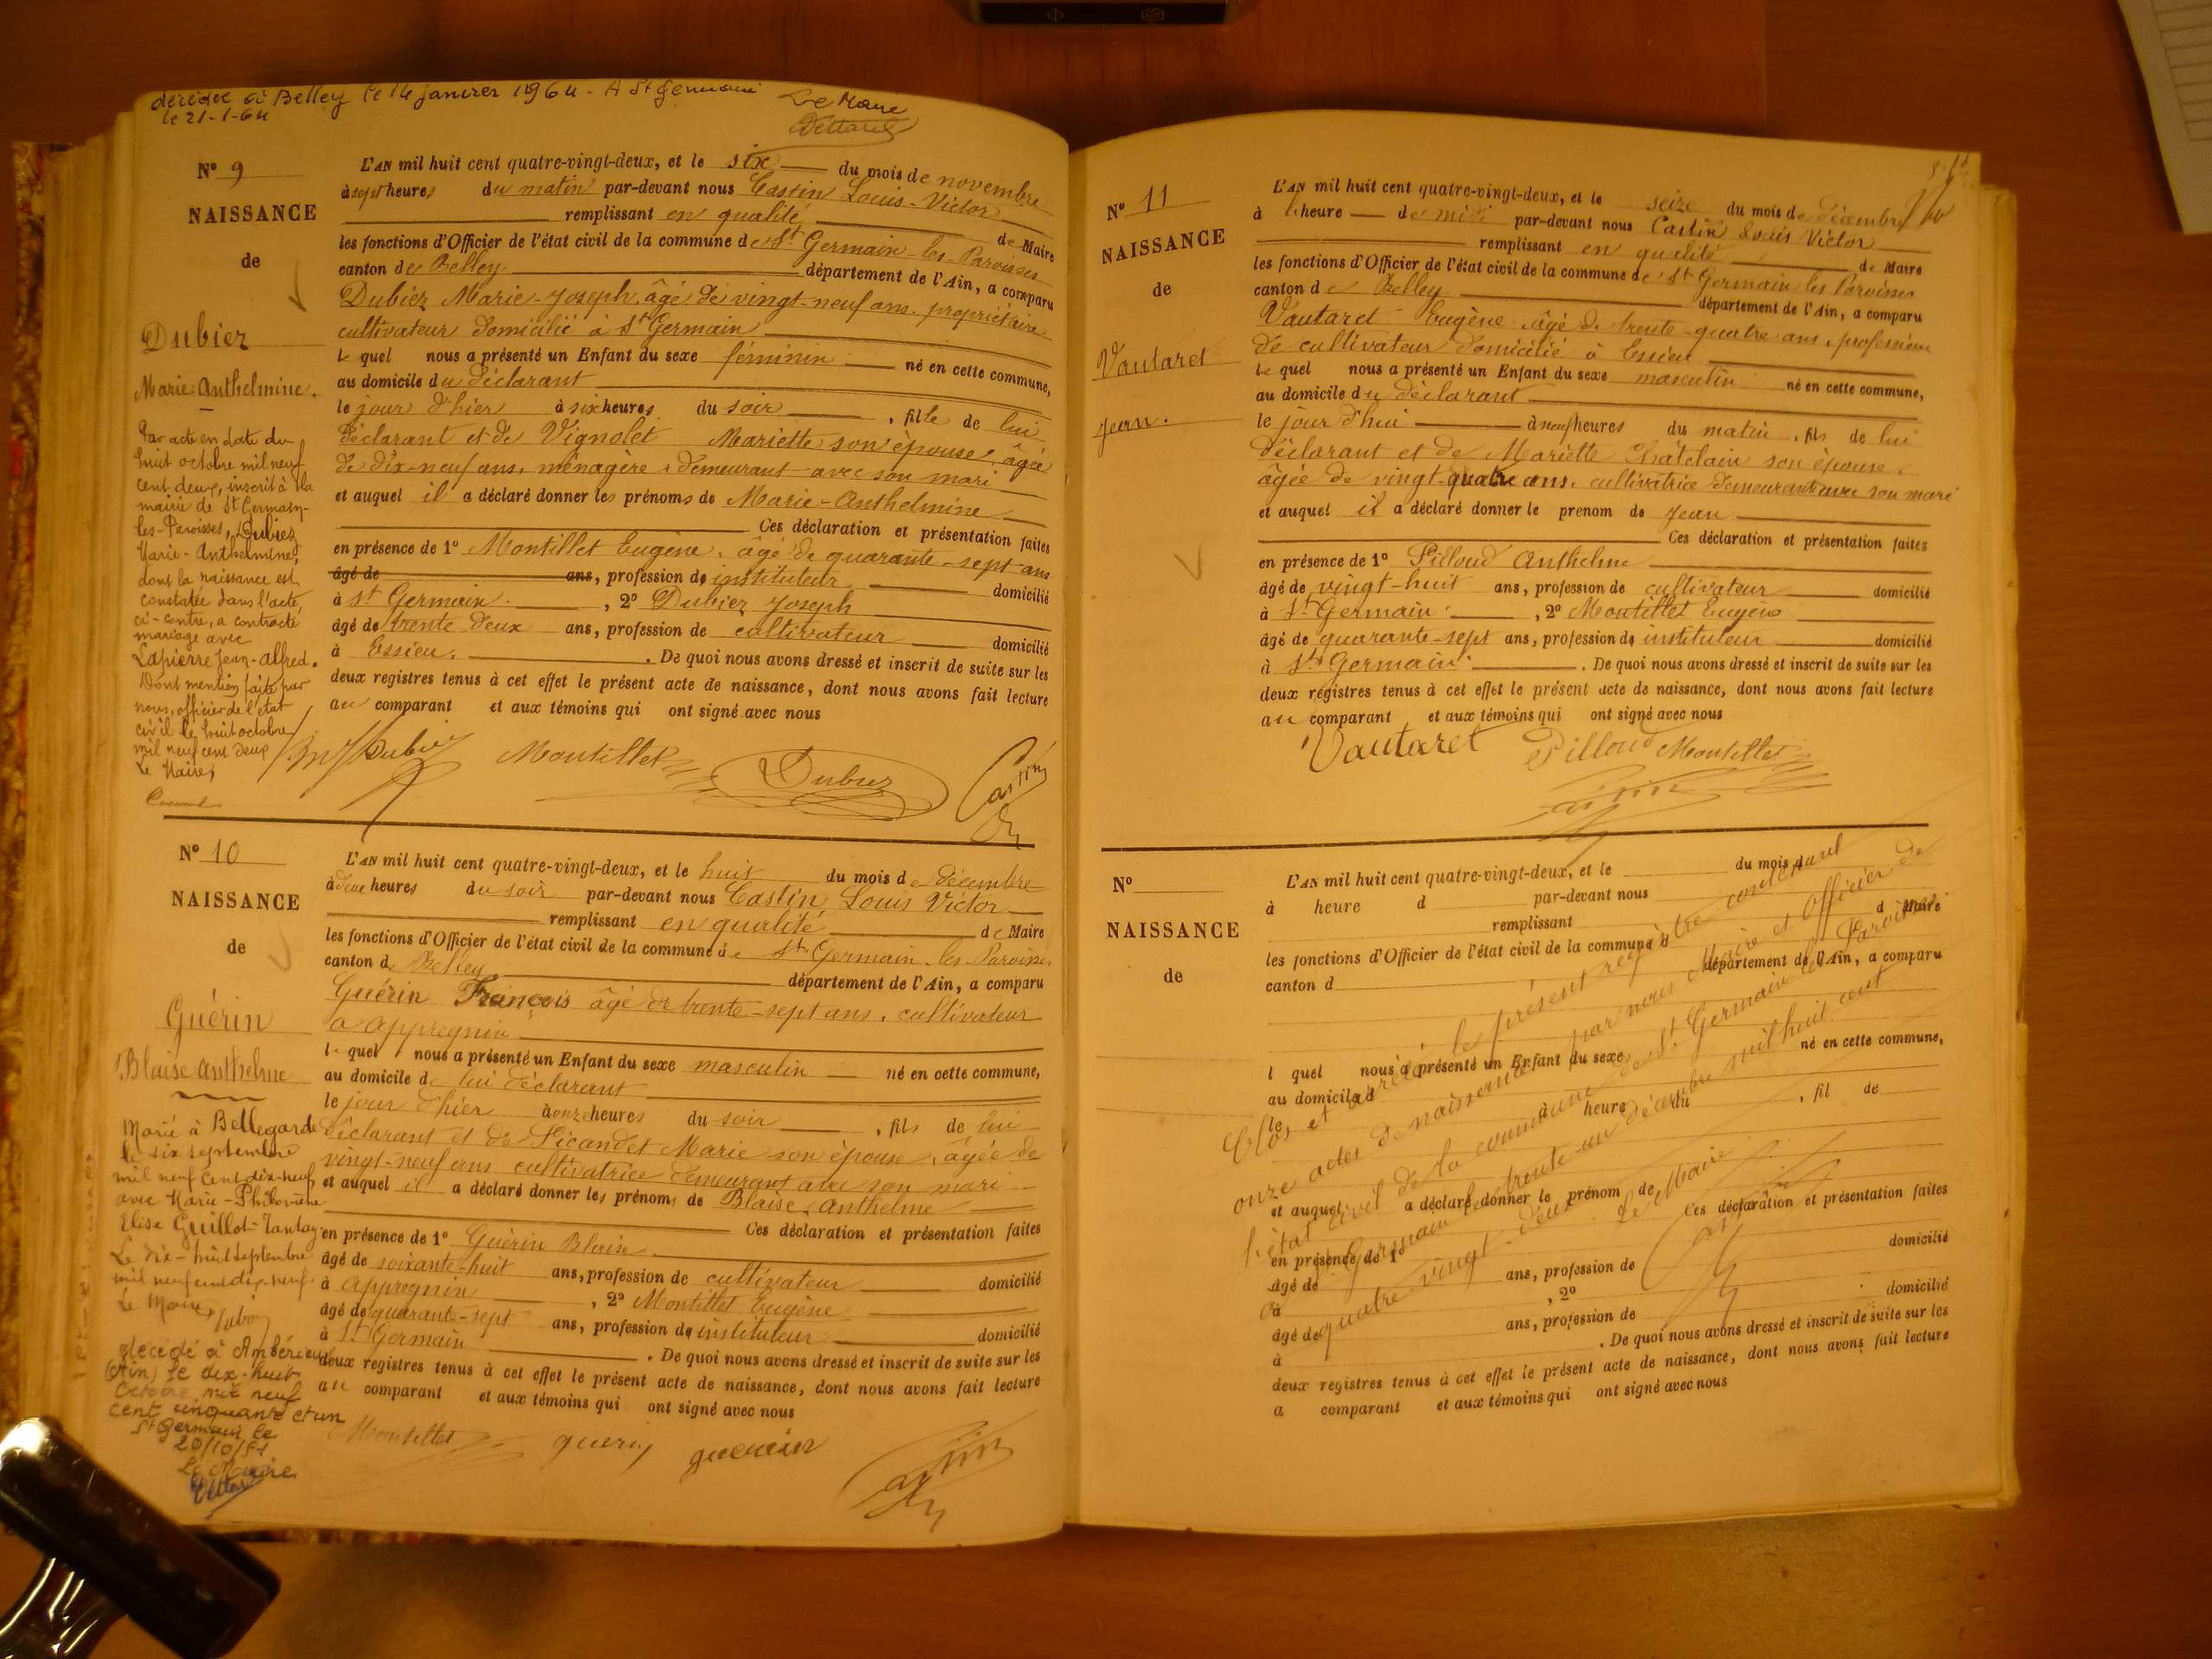 décédée à Belley le 14 janvier 1964 - A St Germain
le 21-1-64
Le Maire
N° 9
NAISSANCE
de
Dubiez
Marie-Anthelmine.
Par acte en date du
huit octobre mil neuf
cent deux, inscrit à la
mairie de St Germain-
les-Paroisses, Dubiez
Marie-Anthelmine,
dont la naissance est
constatée dans l'acte,
ci-contre, a contracté
mariage avec
Lapierre Jean-Alfred.
Dont mention faite par
nous, officier de l'état
civil le huit octobre
mil neuf cent deux
Le Maire,
L'AN mil huit cent quatre-vingt-deux, et le six du mois de novembre
à sept heures du matin par-devant nous Castin Louis-Victor
remplissant en qualité de Maire
les fonctions d'Officier de l'état civil de la commune de St Germain-les-Paroisses
canton de Belley département de l'Ain, a comparu
Dubiez Marie-Joseph, âgé de vingt-neuf ans, propriétaire
cultivateur domicilié à St Germain
lequel nous a présenté un Enfant du sexe féminin né en cette commune,
au domicile du déclarant
le jour d'hier à six heures du soir, fille de lui
déclarant et de Vignolet Mariette son épouse, âgée
de dix-neuf ans, ménagère, demeurant avec son mari
et auquel il a déclaré donner les prénoms de Marie-Anthelmine
Ces déclaration et présentation faites
en présence de 1° Montillet Eugène, âgé de quarante-sept ans
âgé de ans, profession de instituteur domicilié
à St Germain, 2° Dubiez Joseph
âgé de trente deux ans, profession de cultivateur domicilié
à Essieu. De quoi nous avons dressé et inscrit de suite sur les
deux registres tenus à cet effet le présent acte de naissance, dont nous avons fait lecture
au comparant et aux témoins qui ont signé avec nous
Dubiez Montillet Dubiez Castin
N° 10
NAISSANCE
de
Guérin
Blaise Anthelme
Marié à Bellegarde
le six septembre
mil neuf cent dix-neuf
avec Marie-Philomène
Elise Guillot-
Le dix-huit septembre
mil neuf cent dix-neuf.
Le Maire,
décédé à Ambérieu
(Ain) le dix-huit
octobre mil neuf
cent cinquante et un
St Germain le
20/10/51
Le Maire
L'AN mil huit cent quatre-vingt-deux, et le huit du mois de décembre
à deux heures du soir par-devant nous Castin Louis Victor
remplissant en qualité de Maire
les fonctions d'Officier de l'état civil de la commune de St Germain-les-Paroisses
canton de Belley département de l'Ain, a comparu
Guérin François âgé de trente-sept ans, cultivateur
à Appregnin
lequel nous a présenté un Enfant du sexe masculin né en cette commune,
au domicile de lui déclarant
le jour d'hier à onze heures du soir, fils de lui
déclarant et de Picandet Marie son épouse, âgée de
vingt-neuf ans cultivatrice demeurant avec son mari
et auquel il a déclaré donner les prénoms de Blaise, Anthelme
Ces déclaration et présentation faites
en présence de 1° Guérin Blaise
âgé de soixante-huit ans, profession de cultivateur domicilié
à Appregnin, 2° Montillet Eugène
âgé de quarante-sept ans, profession de instituteur domicilié
à St Germain. De quoi nous avons dressé et inscrit de suite sur les
deux registres tenus à cet effet le présent acte de naissance, dont nous avons fait lecture
au comparant et aux témoins qui ont signé avec nous
Montillet guerin guerin Castin
N° 11
NAISSANCE
de
Vautaret
Jean.
L'AN mil huit cent quatre-vingt-deux, et le seize du mois de décembre
à heure de midi par-devant nous Castin Louis Victor
remplissant en qualité de Maire
les fonctions d'Officier de l'état civil de la commune de St Germain les Paroisses
canton de Belley département de l'Ain, a comparu
Vautaret Eugène âgé de trente-quatre ans, profession
de cultivateur domicilié à Essieu
lequel nous a présenté un Enfant du sexe masculin né en cette commune,
au domicile du déclarant
le jour d'hui à neuf heures du matin, fils de lui
déclarant et de Mariette Châtelain son épouse,
âgée de vingt-quatre ans, cultivatrice demeurant avec son mari
et auquel il a déclaré donner le prenom de Jean
Ces déclaration et présentation faites
en présence de 1° Pilloud Anthelme
âgé de vingt-huit ans, profession de cultivateur domicilié
à St Germain, 2° Montillet Eugène
âgé de quarante-sept ans, profession de instituteur domicilié
à St Germain. De quoi nous avons dressé et inscrit de suite sur les
deux registres tenus à cet effet le présent acte de naissance, dont nous avons fait lecture
au comparant et aux témoins qui ont signé avec nous
Vautaret Pilloud Montillet
Castin
N°
NAISSANCE
de
L'AN mil huit cent quatre-vingt-deux, et le du mois d
à heure d par-devant nous
remplissant d Maire
les fonctions d'Officier de l'état civil de la commune d
canton d département de l'Ain, a comparu
l quel nous a présenté un Enfant du sexe né en cette commune,
au domicile d
le à heure du , fil de
et auquel a déclaré donner le prénom de
Ces déclaration et présentation faites
en présence de 1°
âgé de ans, profession de domicilié
à , 2°
âgé de ans, profession de domicilié
à . De quoi nous avons dressé et inscrit de suite sur les
deux registres tenus à cet effet le présent acte de naissance, dont nous avons fait lecture
a comparant et aux témoins qui ont signé avec nous
Clos et arrêté le présent registre contenant
onze actes de naissance par nous Maire et officier de
l'état civil de la commune de St Germain les Paroisses
à St Germain le trente-un décembre mil huit cent
quatre vingt-deux
Le Maire
Castin